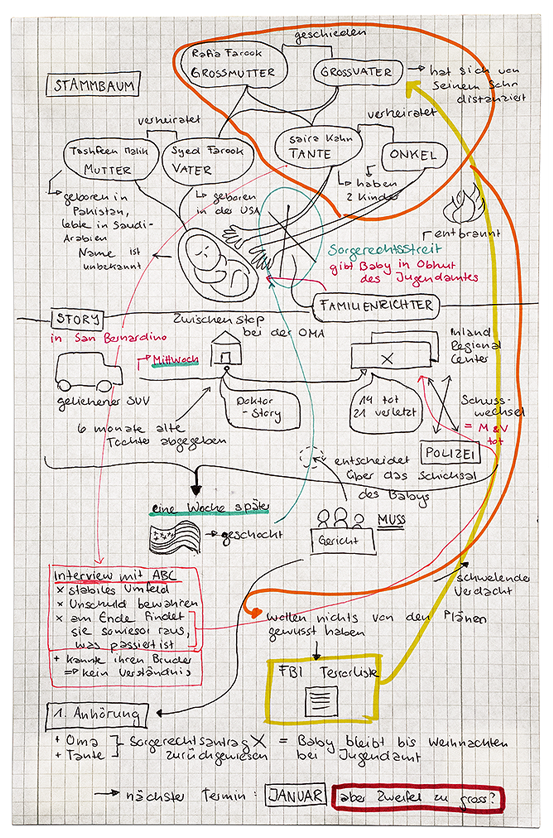 geschieden
Rafia Farook
GROSSMUTTER
GROSSVATER
→ hat sich von
seinem Sohn
distanziert
STAMMBAUM
verheiratet
verheiratet
Tashfeen Malik
MUTTER
Syed Farook
VATER
Saira Kahn
TANTE
ONKEL
geboren in
Pakistan,
lebte in Saudi-
Arabien
geboren
in den USA
haben
2 Kinder
entbrannt
Name ist
unbekannt
Sorgerechtsstreit
gibt Baby in Obhut
des Jugendamtes
FAMILIENRICHTER
STORY
Zwischenstop
bei der OMA
in San Bernardino
Mittwoch
Inland
Regional
Center
geliehener SUV
Doktor-
Story
14 tot
21 verletzt
Schuss-
wechsel
= M & V
tot
6 monate alte
Tochter abgegeben
POLIZEI
entscheidet
über das Schicksal
des Babys
eine Woche später
→ geschockt
MUSS
Gericht
Interview mit ABC
x stabiles Umfeld
x Unschuld bewahren
x am Ende findet
sie sowieso raus,
was passiert ist
+ kannte ihren Bruder
⇒ kein Verständnis
schwelender
Verdacht
wollen nichts von den Plänen
gewusst haben
FBI Terrorliste
1. Anhörung
+ Oma
+ Tante
Sorgerechtsantrag X
zurückgewiesen
= Baby bleibt bis Weihnachten
bei Jugendamt
→ nächster Termin: JANUAR aber Zweifel zu gross?